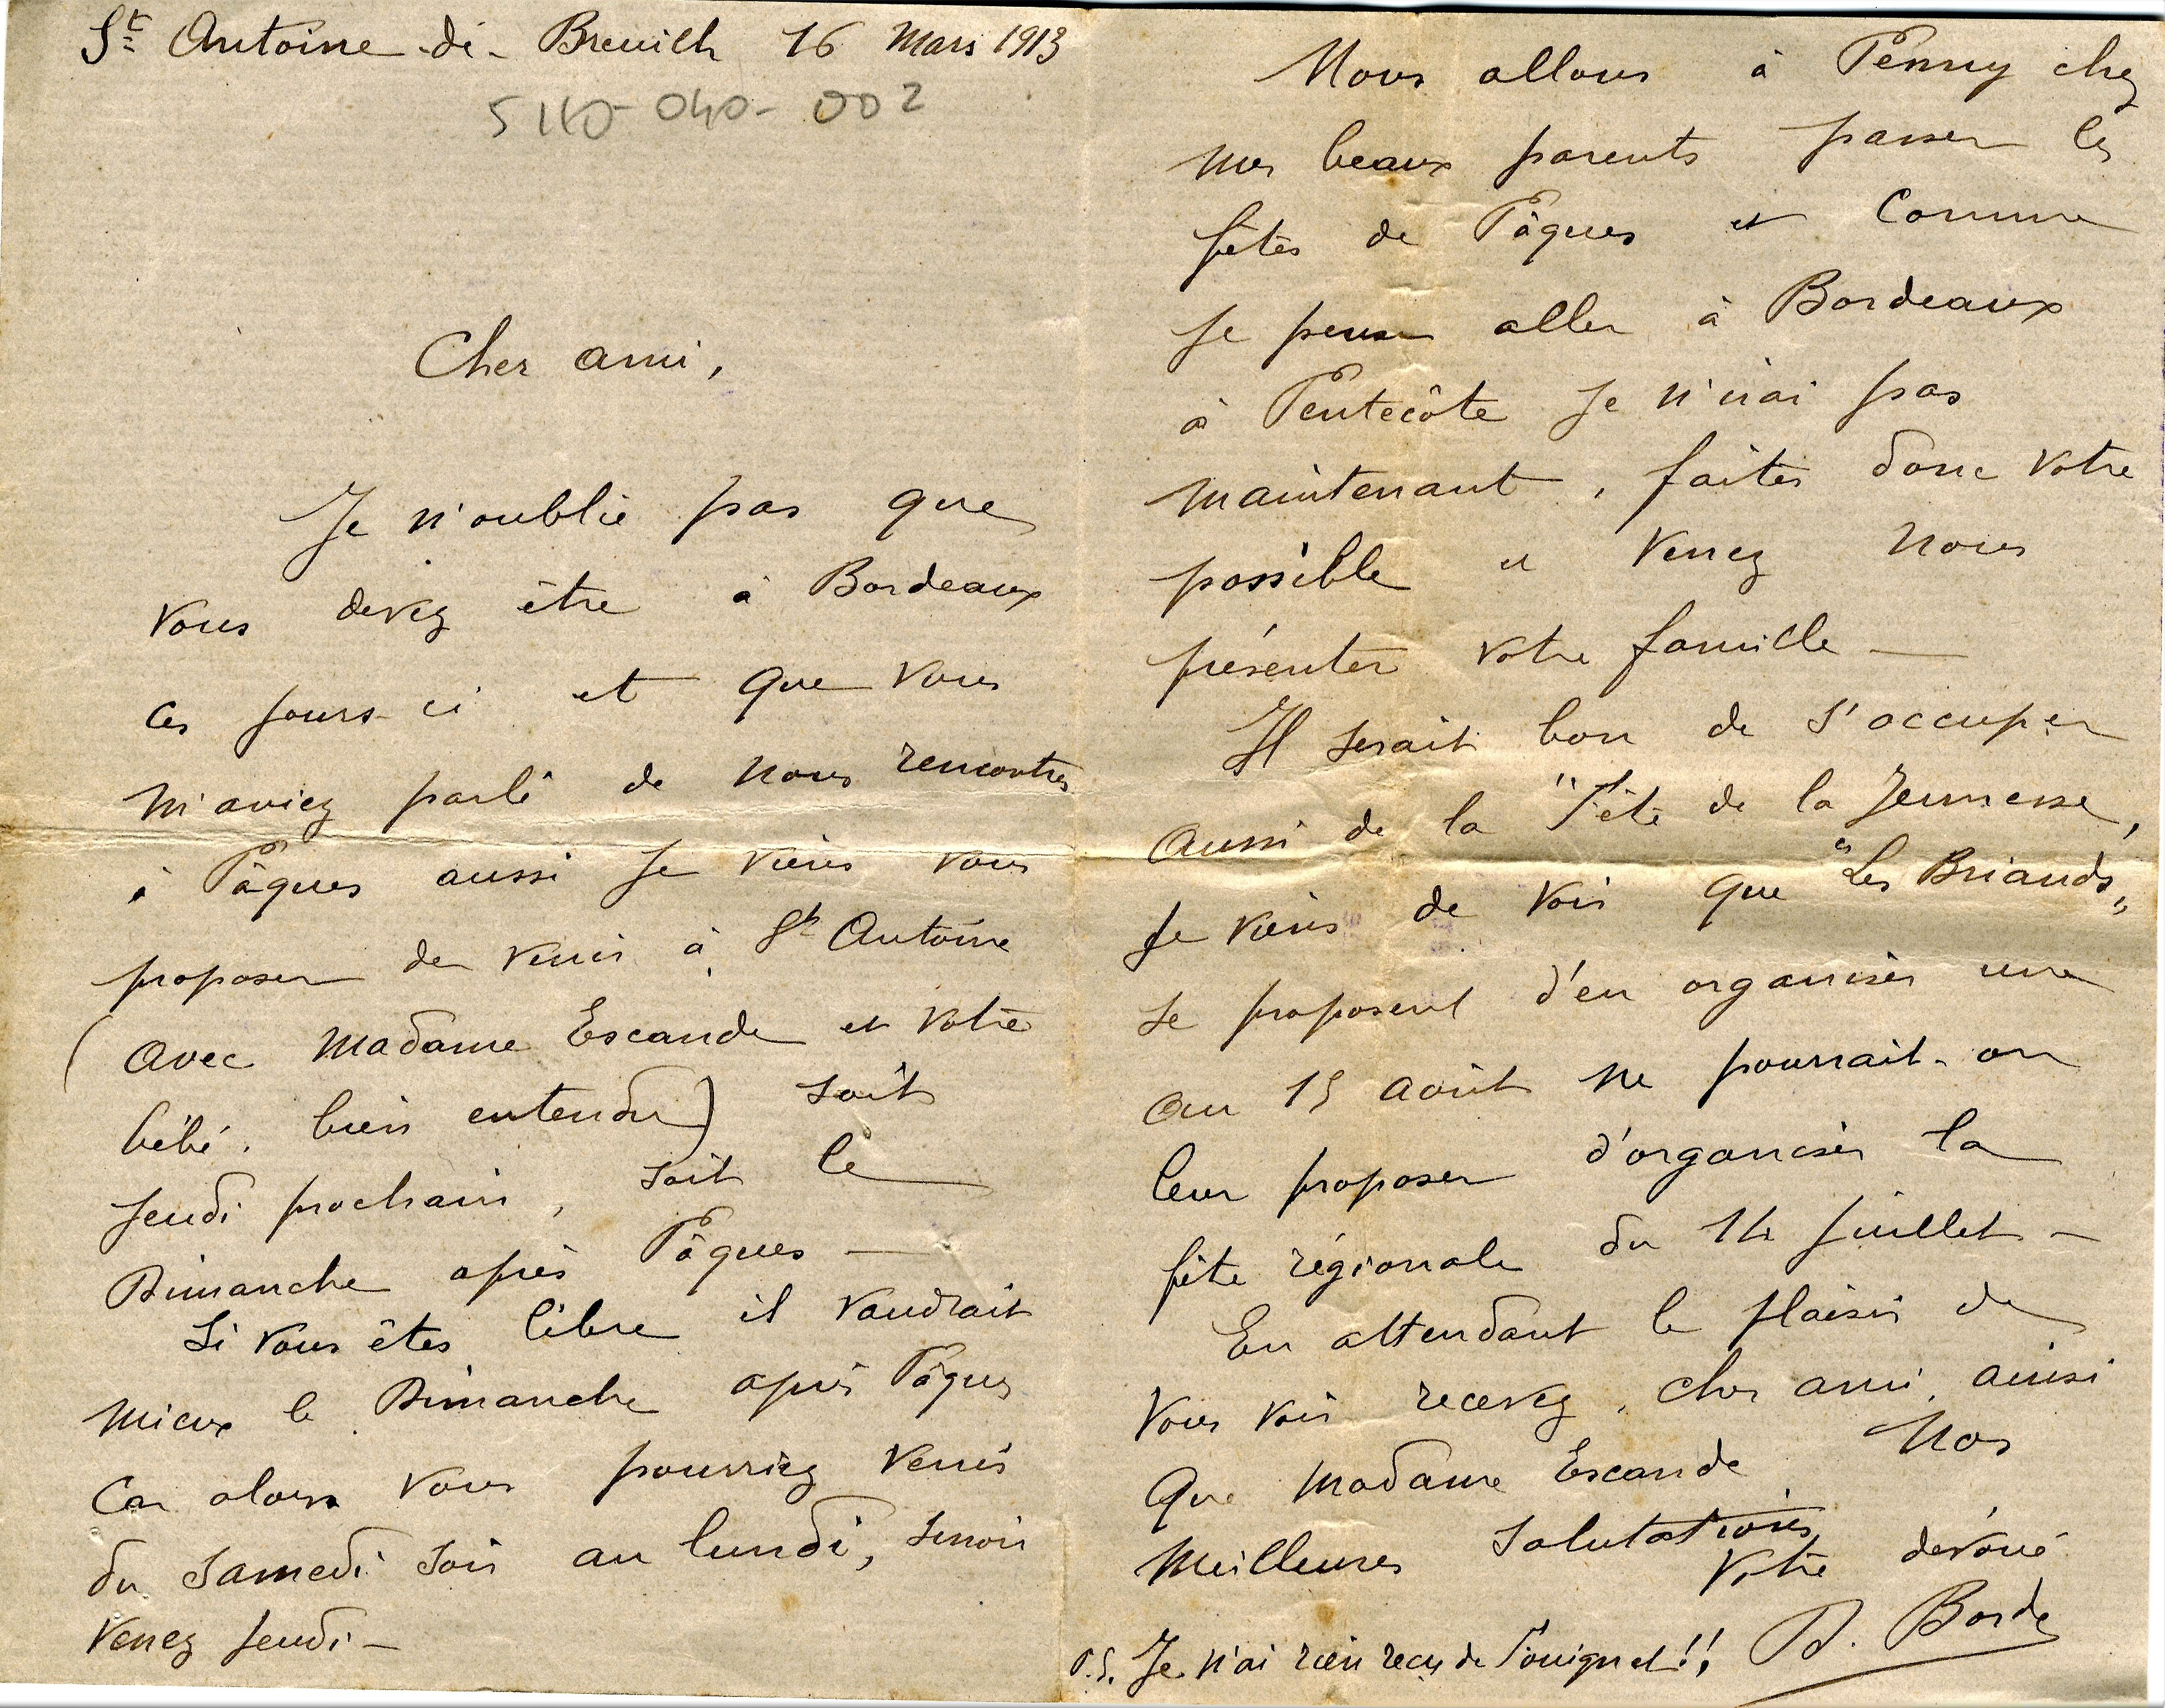 St Antoine-de-Breuilh 16 Mars 1913
5140-040-002
Cher ami,
Je n'oublie pas que
vous devez être à Bordeaux
ces jours-ci et que vous
m'aviez parlé de nous rencontrer
à Pâques aussi je viens vous
proposer de venir à St Antoine
(avec Madame Escande et votre
bébé, bien entendu) soit
jeudi prochain, soit le
Dimanche après Pâques —
Si vous êtes libre il vaudrait
mieux le Dimanche après Pâques
car alors vous pourriez venir
du samedi soir au lundi, sinon
venez jeudi —
Nous allons à chez
mes beaux parents passer les
fêtes de Pâques et comme
je pense aller à Bordeaux
à Pentecôte je n'irai pas
maintenant, faites donc votre
possible et venez nous
présenter votre famille —
Il serait bon de s'occuper
aussi de la "Fête de la Jeunesse,
je viens de voir que "Les Briands"
se proposent d'en organiser une
au 15 août ne pourrait-on
leur proposer d'organiser la
fête régionale du 14 juillet —
En attendant le plaisir de
vous voir recevez, cher ami, ainsi
que Madame Escande nos
meilleures salutations
Votre dévoué
Borde
P.S. Je n'ai rien reçu de !!